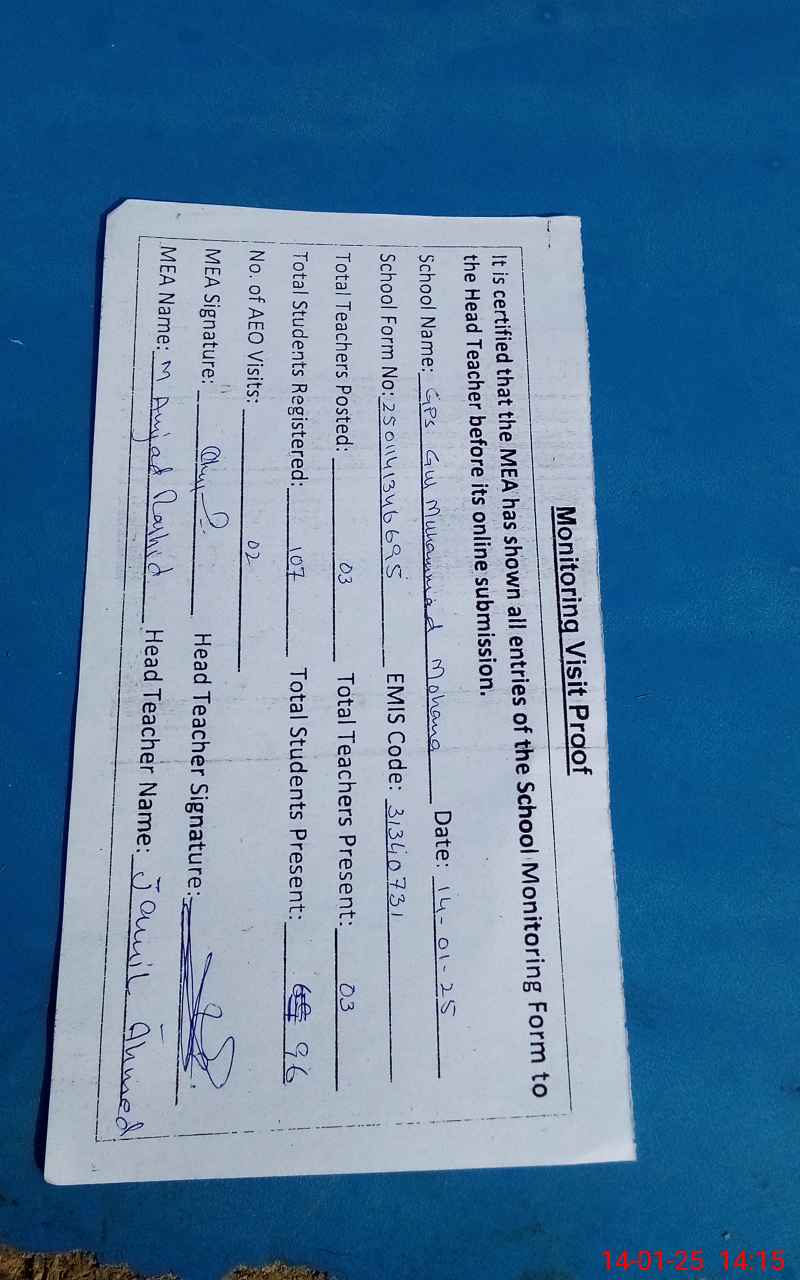 Monitoring Visit Proof
It is certified that the MEA has shown all entries of the School Monitoring Form to
the Head Teacher before its online submission.
School Name: GPS Gul Muhammad Mohana Date: 14-01-25
School Form No: 2501141346695 EMIS Code: 31340731
Total Teachers Posted: 03 Total Teachers Present: 03
Total Students Registered: 107 Total Students Present: 96
No. of AEO Visits: 02
MEA Signature: Head Teacher Signature:
MEA Name: M Amjad Rashid Head Teacher Name: Jamil Ahmed
14-01-25 14:15